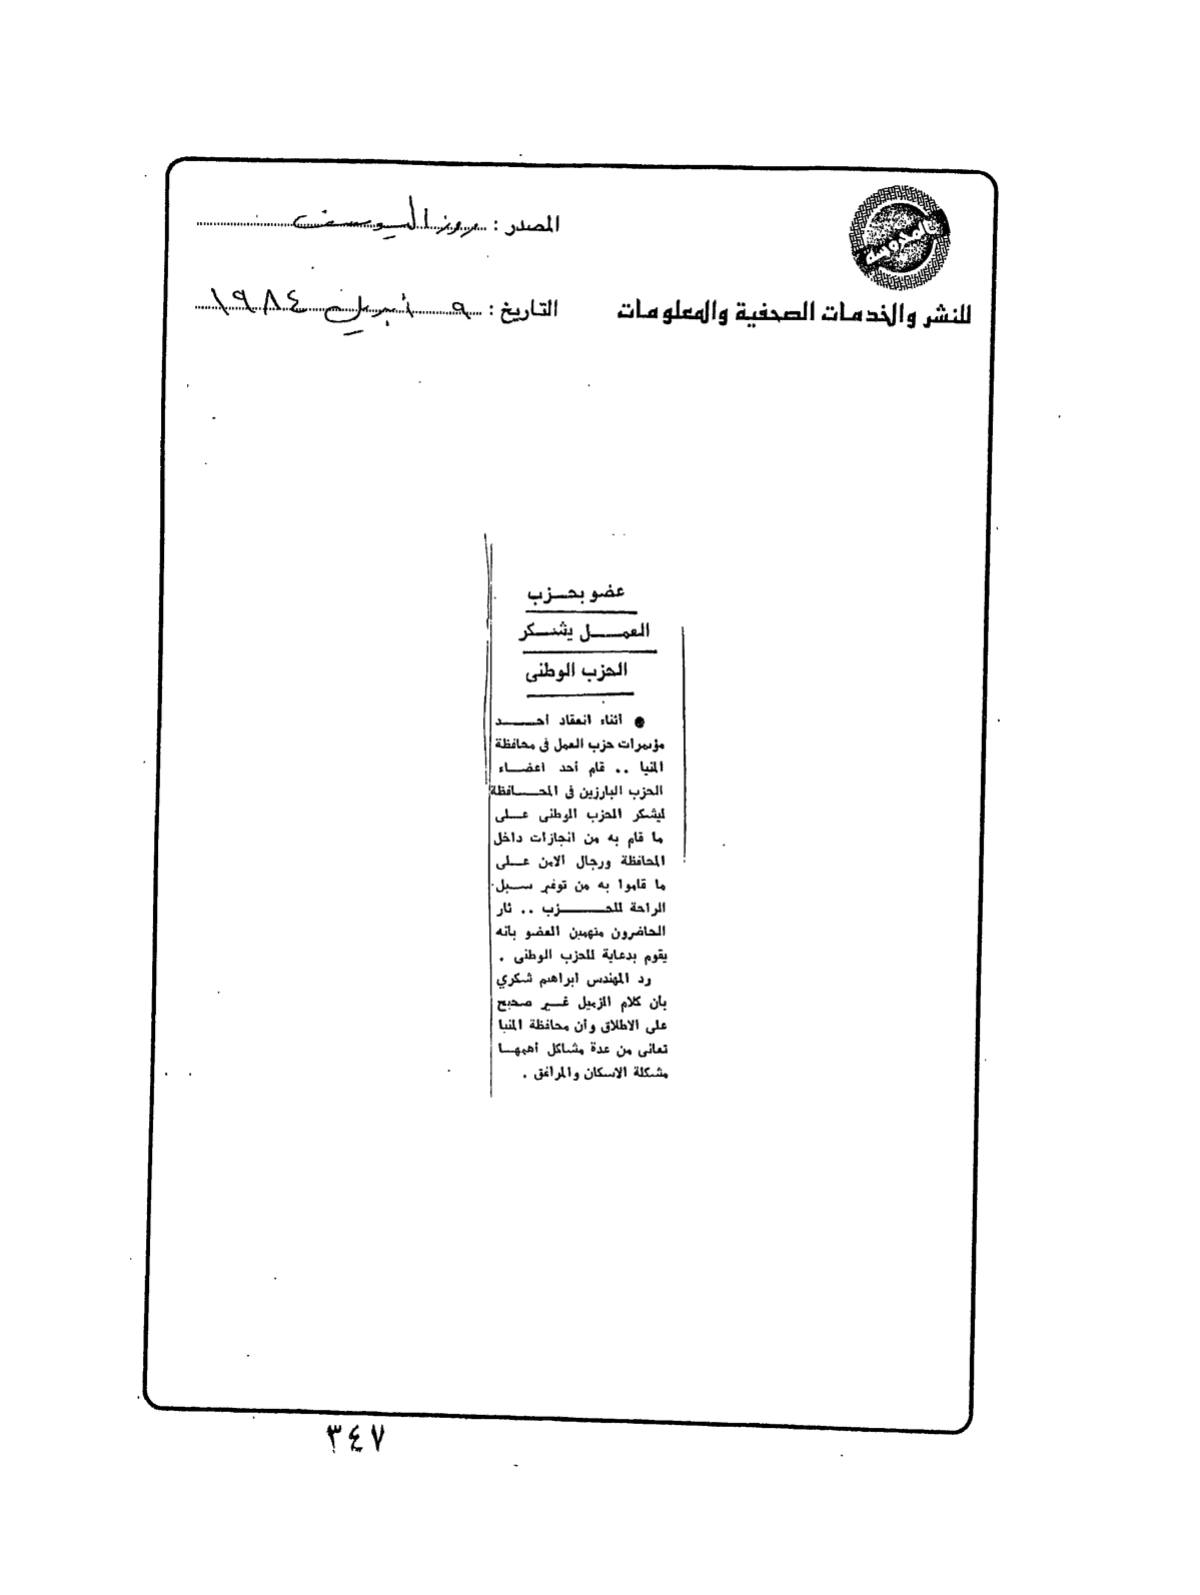 المصدر : روز اليوسف
للنشر والخدمات الصحفية والمعلومات
التاريخ : ٩ أبريل ١٩٨٤
عضو بحزب
العمل يشكر
الحزب الوطنى
● اثناء انعقاد احد
مؤتمرات حزب العمل فى محافظة
المنيا .. قام أحد اعضاء
الحزب البارزين فى المحافظة
ليشكر الحزب الوطنى على
ما قام به من انجازات داخل
المحافظة ورجال الامن على
ما قاموا به من توفير سبل
الراحة للحزب .. ثار
الحاضرون متهمين العضو بانه
يقوم بدعاية للحزب الوطنى .
رد المهندس ابراهيم شكري
بان كلام الزميل غير صحيح
على الاطلاق وأن محافظة المنيا
تعانى من عدة مشاكل أهمها
مشكلة الاسكان والمرافق .
٣٤٧